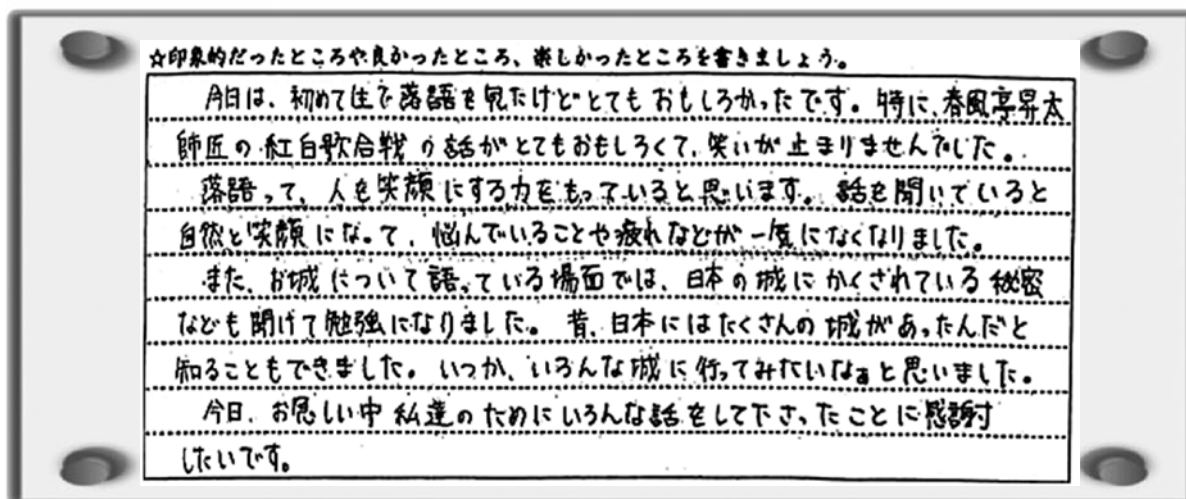 ☆印象的だったところや良かったところ、楽しかったところを書きましょう。
今日は、初めて生で落語を見たけどとてもおもしろかったです。特に、春風亭昇太
師匠の紅白歌合戦の話がとてもおもしろくて、笑いが止まりませんでした。
落語って、人を笑顔にする力をもっていると思います。話を聞いていると
自然と笑顔になって、悩んでいることや疲れなどが一気になくなりました。
また、お城について語っている場面では、日本の城にかくされている秘密
なども聞けて勉強になりました。昔、日本にはたくさんの城があったんだと
知ることもできました。いつか、いろんな城に行ってみたいなぁと思いました。
今日、お忽しい中私達のためにいろんな話をして下さったことに感謝
したいです。